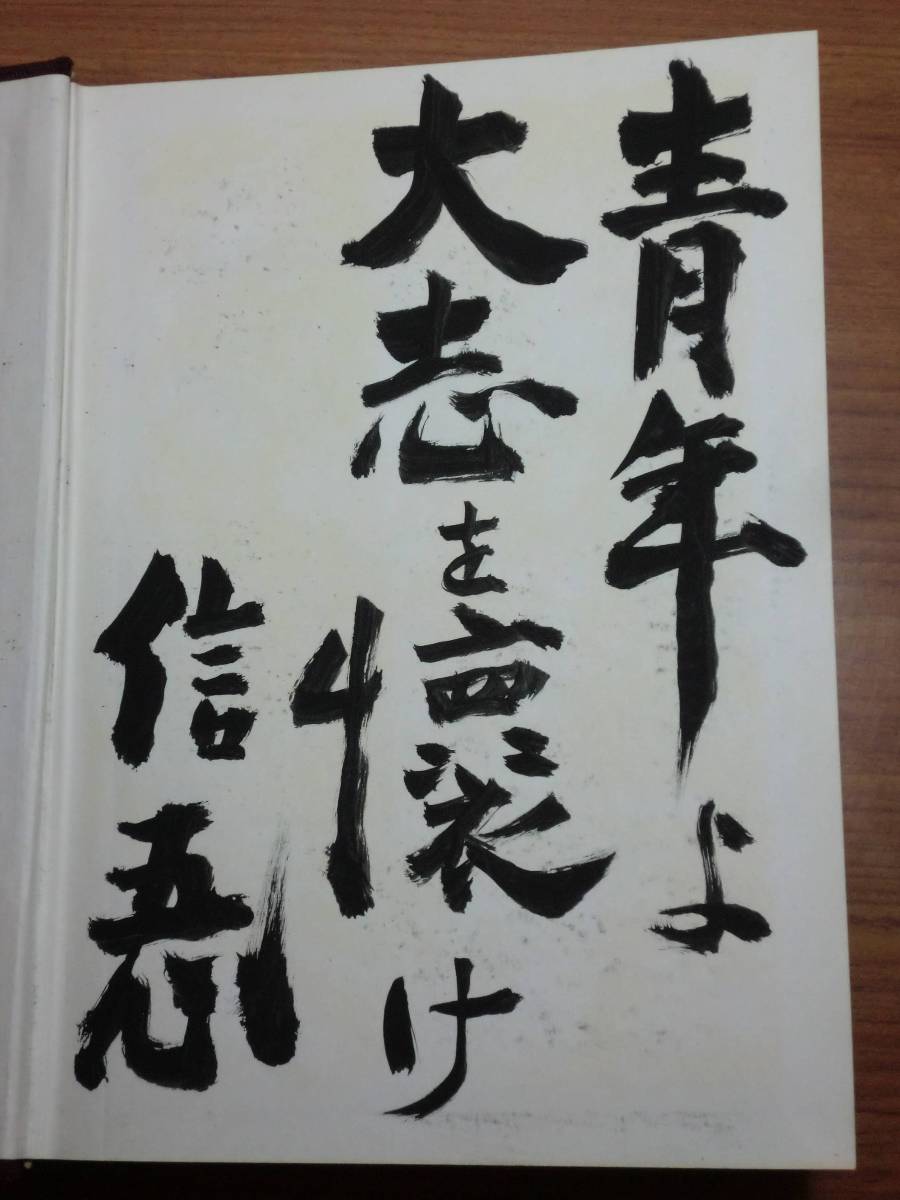 青年よ
大志を懷け
信忢